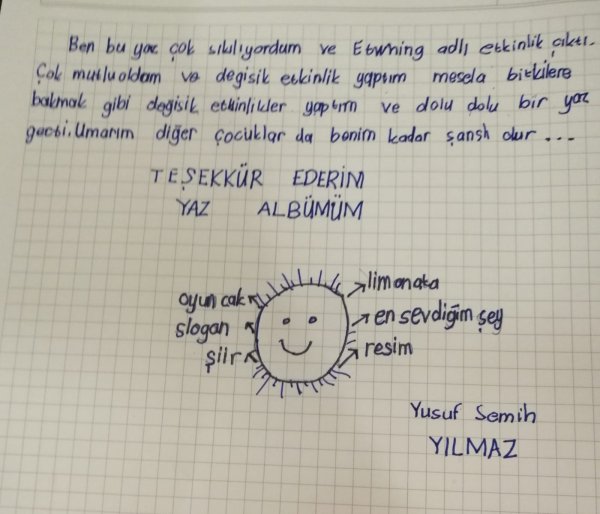 Ben bu yaz çok sıkılıyordum ve Etwining adlı etkinlik çıktı.
Çok mutlu oldam ve degisik etkinlik yaptım mesela bitkilere
bakmak gibi degisik etkinlikler yaptım ve dolu dolu bir yaz
gecti. Umarım diğer çocuklar da benim kadar şanslı olur ...
TEŞEKKÜR EDERİM
YAZ ALBÜMÜM
oyuncak
slogan
şiir
limonata
en sevdiğim şey
resim
Yusuf Semih
YILMAZ